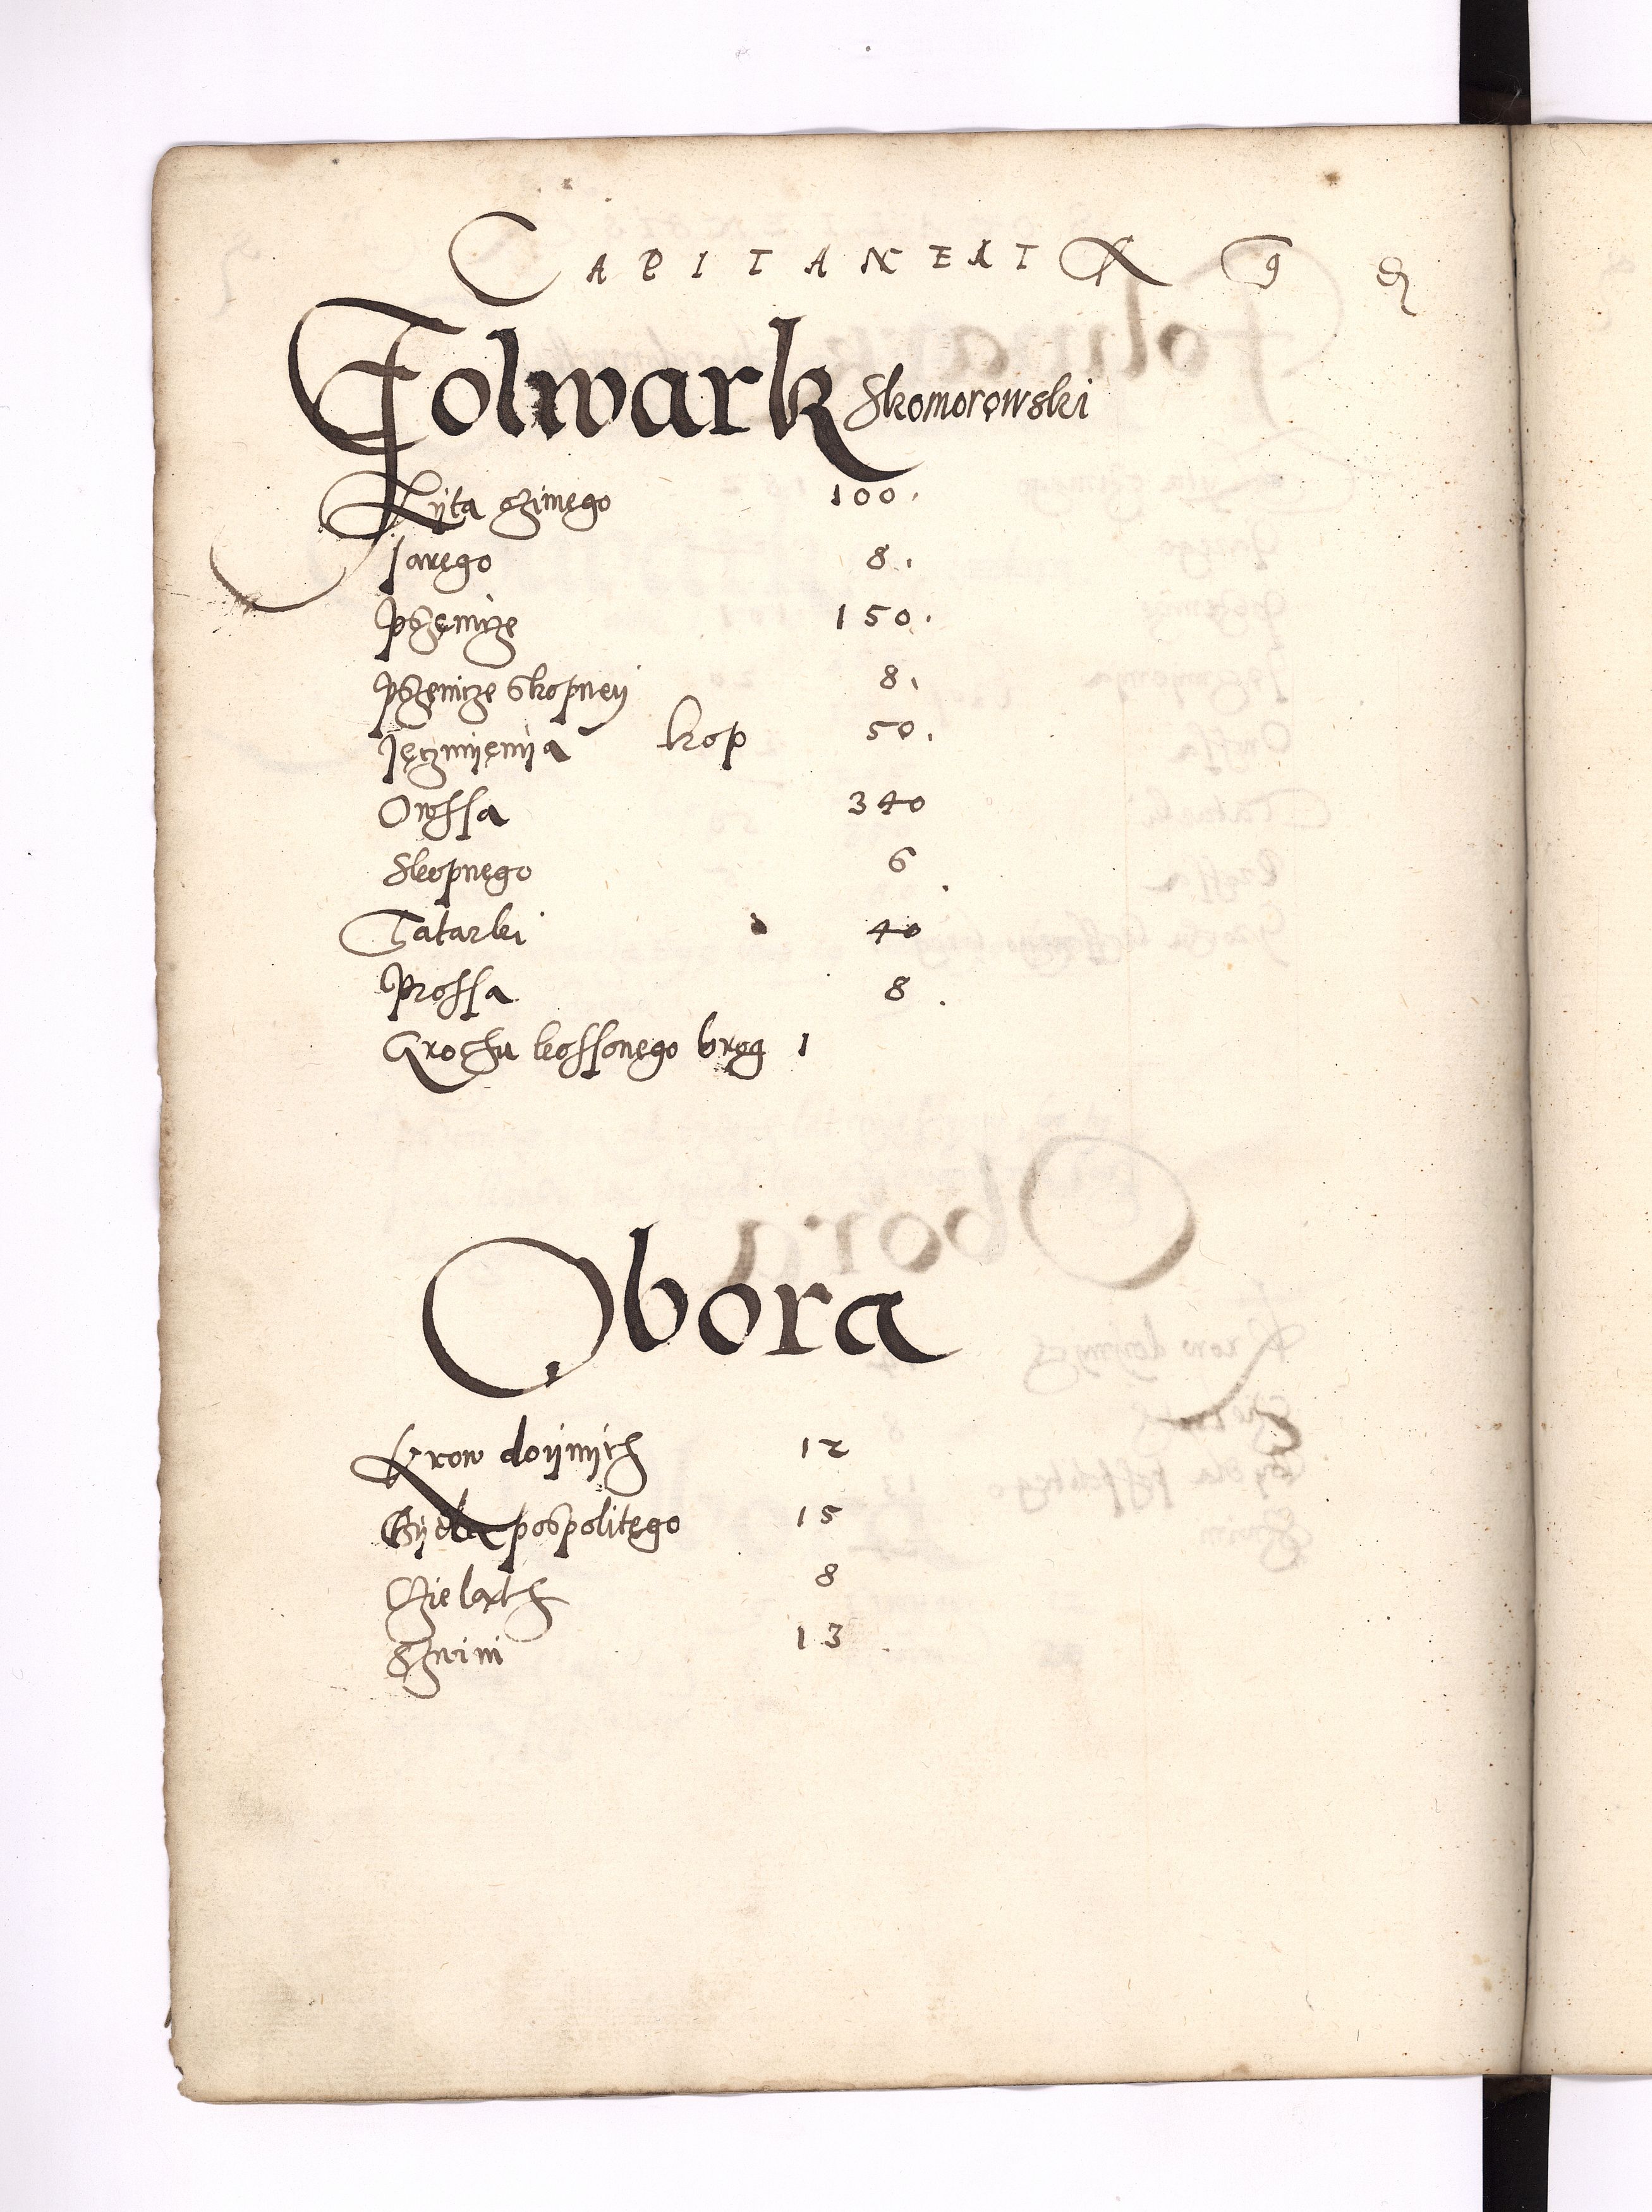 CAPITANEAT
Folwark Skomorowski
Zyta ozimego 100.
Jarego 8.
Pszenicze 150.
Pszenicze skopney 8.
Jęczmijenia kop 50.
Owssa 340
Skopnego 6.
Tatarki 40
Prossa 8.
Grochu kossonego brog 1
Obora
Krow doijnijch 12
Bydla pospolitego 15
Czieląth 8
Swini 13